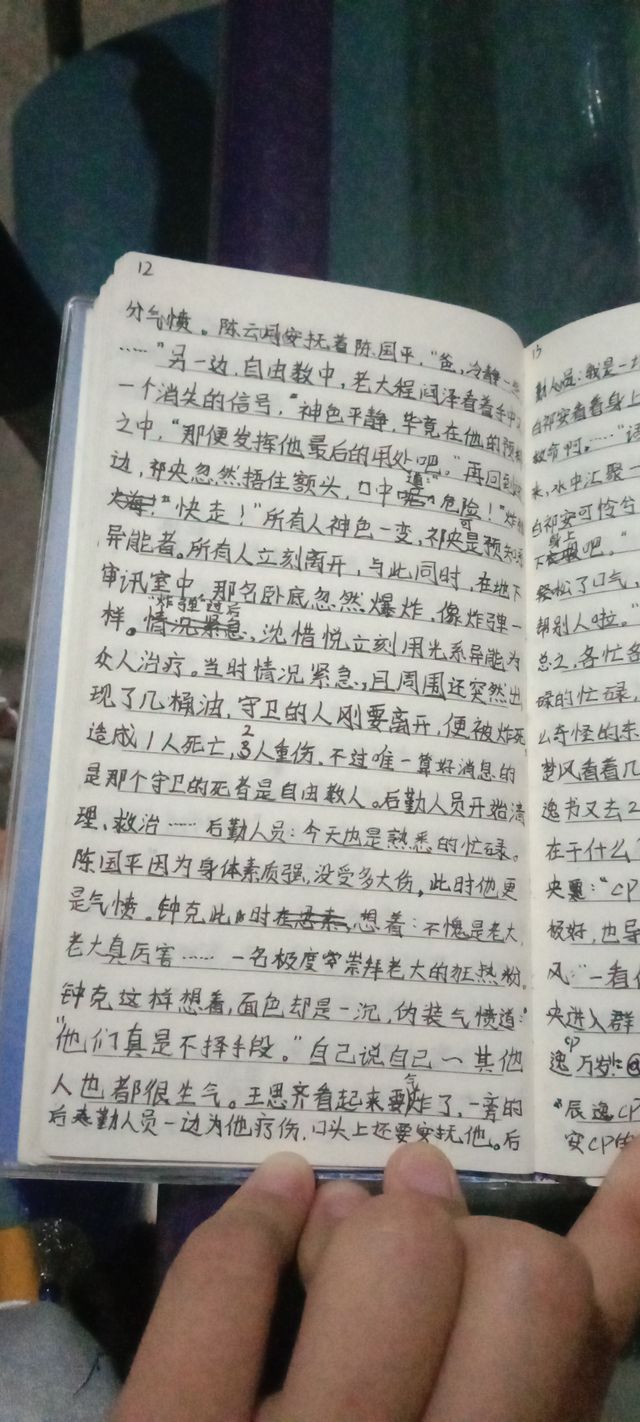 12
分气愤。陈云冉安抚着陈国平,“爸,冷静一些
……”另一边,自由教中,老大程阎泽看着手中
一个消失的信号,“神色平静,毕竟在他的预料
之中,“那便发挥他最后的用处吧。”再回到
边,祁央忽然捂住额头,口中喃道:“危险!”
“快走!”所有人神色一变,祁央可是预知
异能者。所有人立刻离开,与此同时,在地下
审讯室中,那名卧底忽然爆炸,像炸弹一
样。“炸弹”过后,沈惜悦立刻用光系异能为
众人治疗。当时情况紧急,且周围还突然出
现了几桶油,守卫的人刚要离开,便被炸死
造成1人死亡,2人重伤,不过唯一算好消息的
是那个守卫的死者是自由教人。后勤人员开始清
理、救治……后勤人员:今天也是熟悉的忙碌。
陈国平因为身体素质强,没受多大伤,此时他更
是气愤。钟克此时想着:不愧是老大,
老大真厉害……一名极度崇拜老大的狂热粉。
钟克这样想着,面色却是一沉,伪装气愤道:
“他们真是不择手段。”自己说自己一其他
人也都很生气。王思齐看起来要气炸了,一旁的
后勤人员一边为他疗伤,口头上还要安抚他。后
13
勤人员:我是一
白祁安看着身上
救命啊,……“
来,水中汇聚一
白祁安可怜兮
不身上吧。”
轻松了口气,
帮别人啦。”
总之,各忙各
碌的忙碌,
么奇怪的东
楚风看着几
逸书又去2
在干什么
央:“CP
极好,也导
风:“一看
央进入群
逸cp万岁
“辰逸CP
安CP的